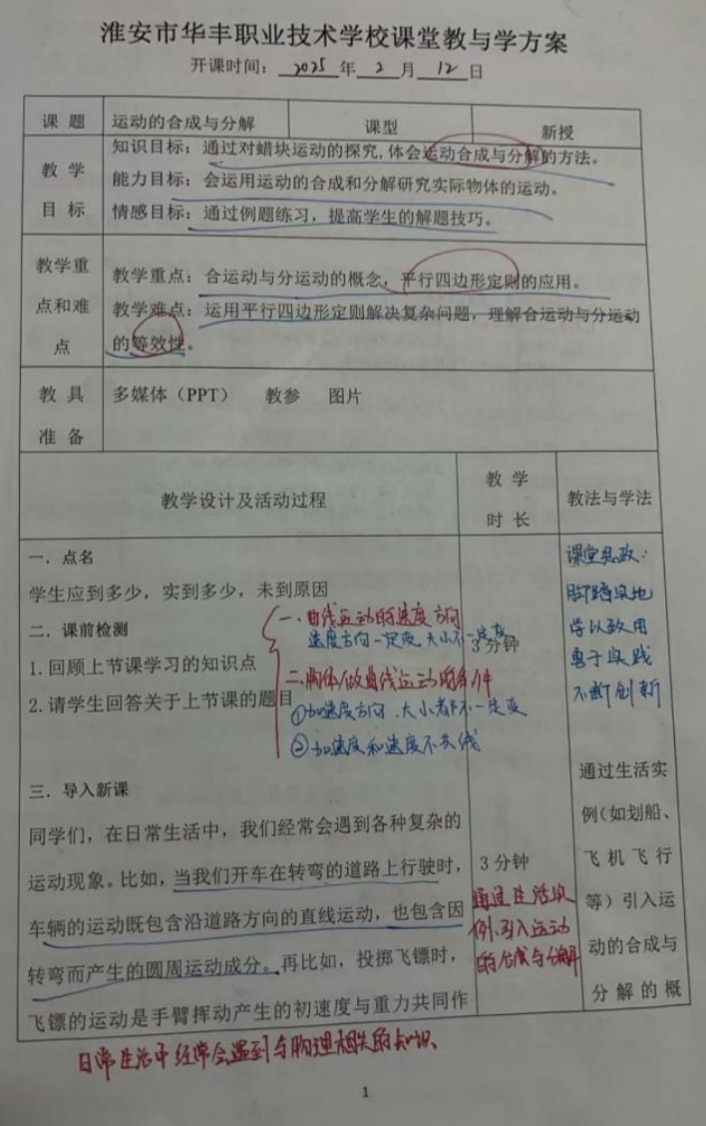 淮安市华丰职业技术学校课堂教与学方案
开课时间：2025年2月12日
课 题 运动的合成与分解 课型 新授
教 学
目 标
知识目标：通过对蜡块运动的探究,体会运动合成与分解的方法。
能力目标：会运用运动的合成和分解研究实际物体的运动。
情感目标：通过例题练习，提高学生的解题技巧。
教学重
点和难
点
教学重点：合运动与分运动的概念，平行四边形定则的应用。
教学难点：运用平行四边形定则解决复杂问题，理解合运动与分运动
的等效性。
教 具
准 备
多媒体（PPT） 教参 图片
教学设计及活动过程
教 学
时 长
教法与学法
一．点名
学生应到多少，实到多少，未到原因
二．课前检测
1.回顾上节课学习的知识点
2.请学生回答关于上节课的题目
一、曲线运动的速度方向
速度方向一定变,大小不一定变
二.物体做曲线运动的条件
①加速度方向、大小都不一定变
②加速度和速度不共线
3分钟
课堂思政：
脚踏实地
学以致用
勇于实践
不断创新
三．导入新课
同学们，在日常生活中，我们经常会遇到各种复杂的
运动现象。比如，当我们开车在转弯的道路上行驶时，
车辆的运动既包含沿道路方向的直线运动，也包含因
转弯而产生的圆周运动成分。再比如，投掷飞镖时，
飞镖的运动是手臂挥动产生的初速度与重力共同作
3分钟
通过生活实
例,引入运动
的合成与分解
通过生活实
例（如划船、
飞机飞行
等）引入运
动的合成与
分解的概
日常生活中经常会遇到与物理相关的知识、
1